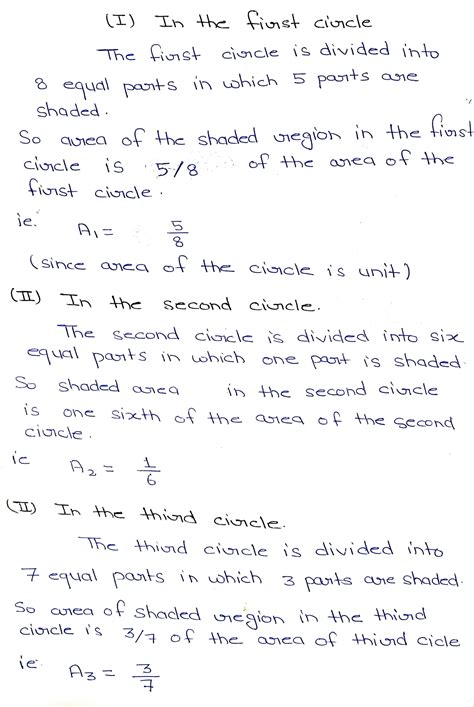 (I) In the first circle
The first circle is divided into
8 equal parts in which 5 parts are
shaded.
So area of the shaded region in the first
circle is 5/8 of the area of the
first circle.
ie. A₁ = 5/8
(since area of the circle is unit)
(II) In the second circle.
The second circle is divided into six
equal parts in which one part is shaded.
So shaded area in the second circle
is one sixth of the area of the second
circle.
ie A₂ = 1/6
(II) In the third circle.
The third circle is divided into
7 equal parts in which 3 parts are shaded.
So area of shaded region in the third
circle is 3/7 of the area of third cicle
ie. A3 = 3/7